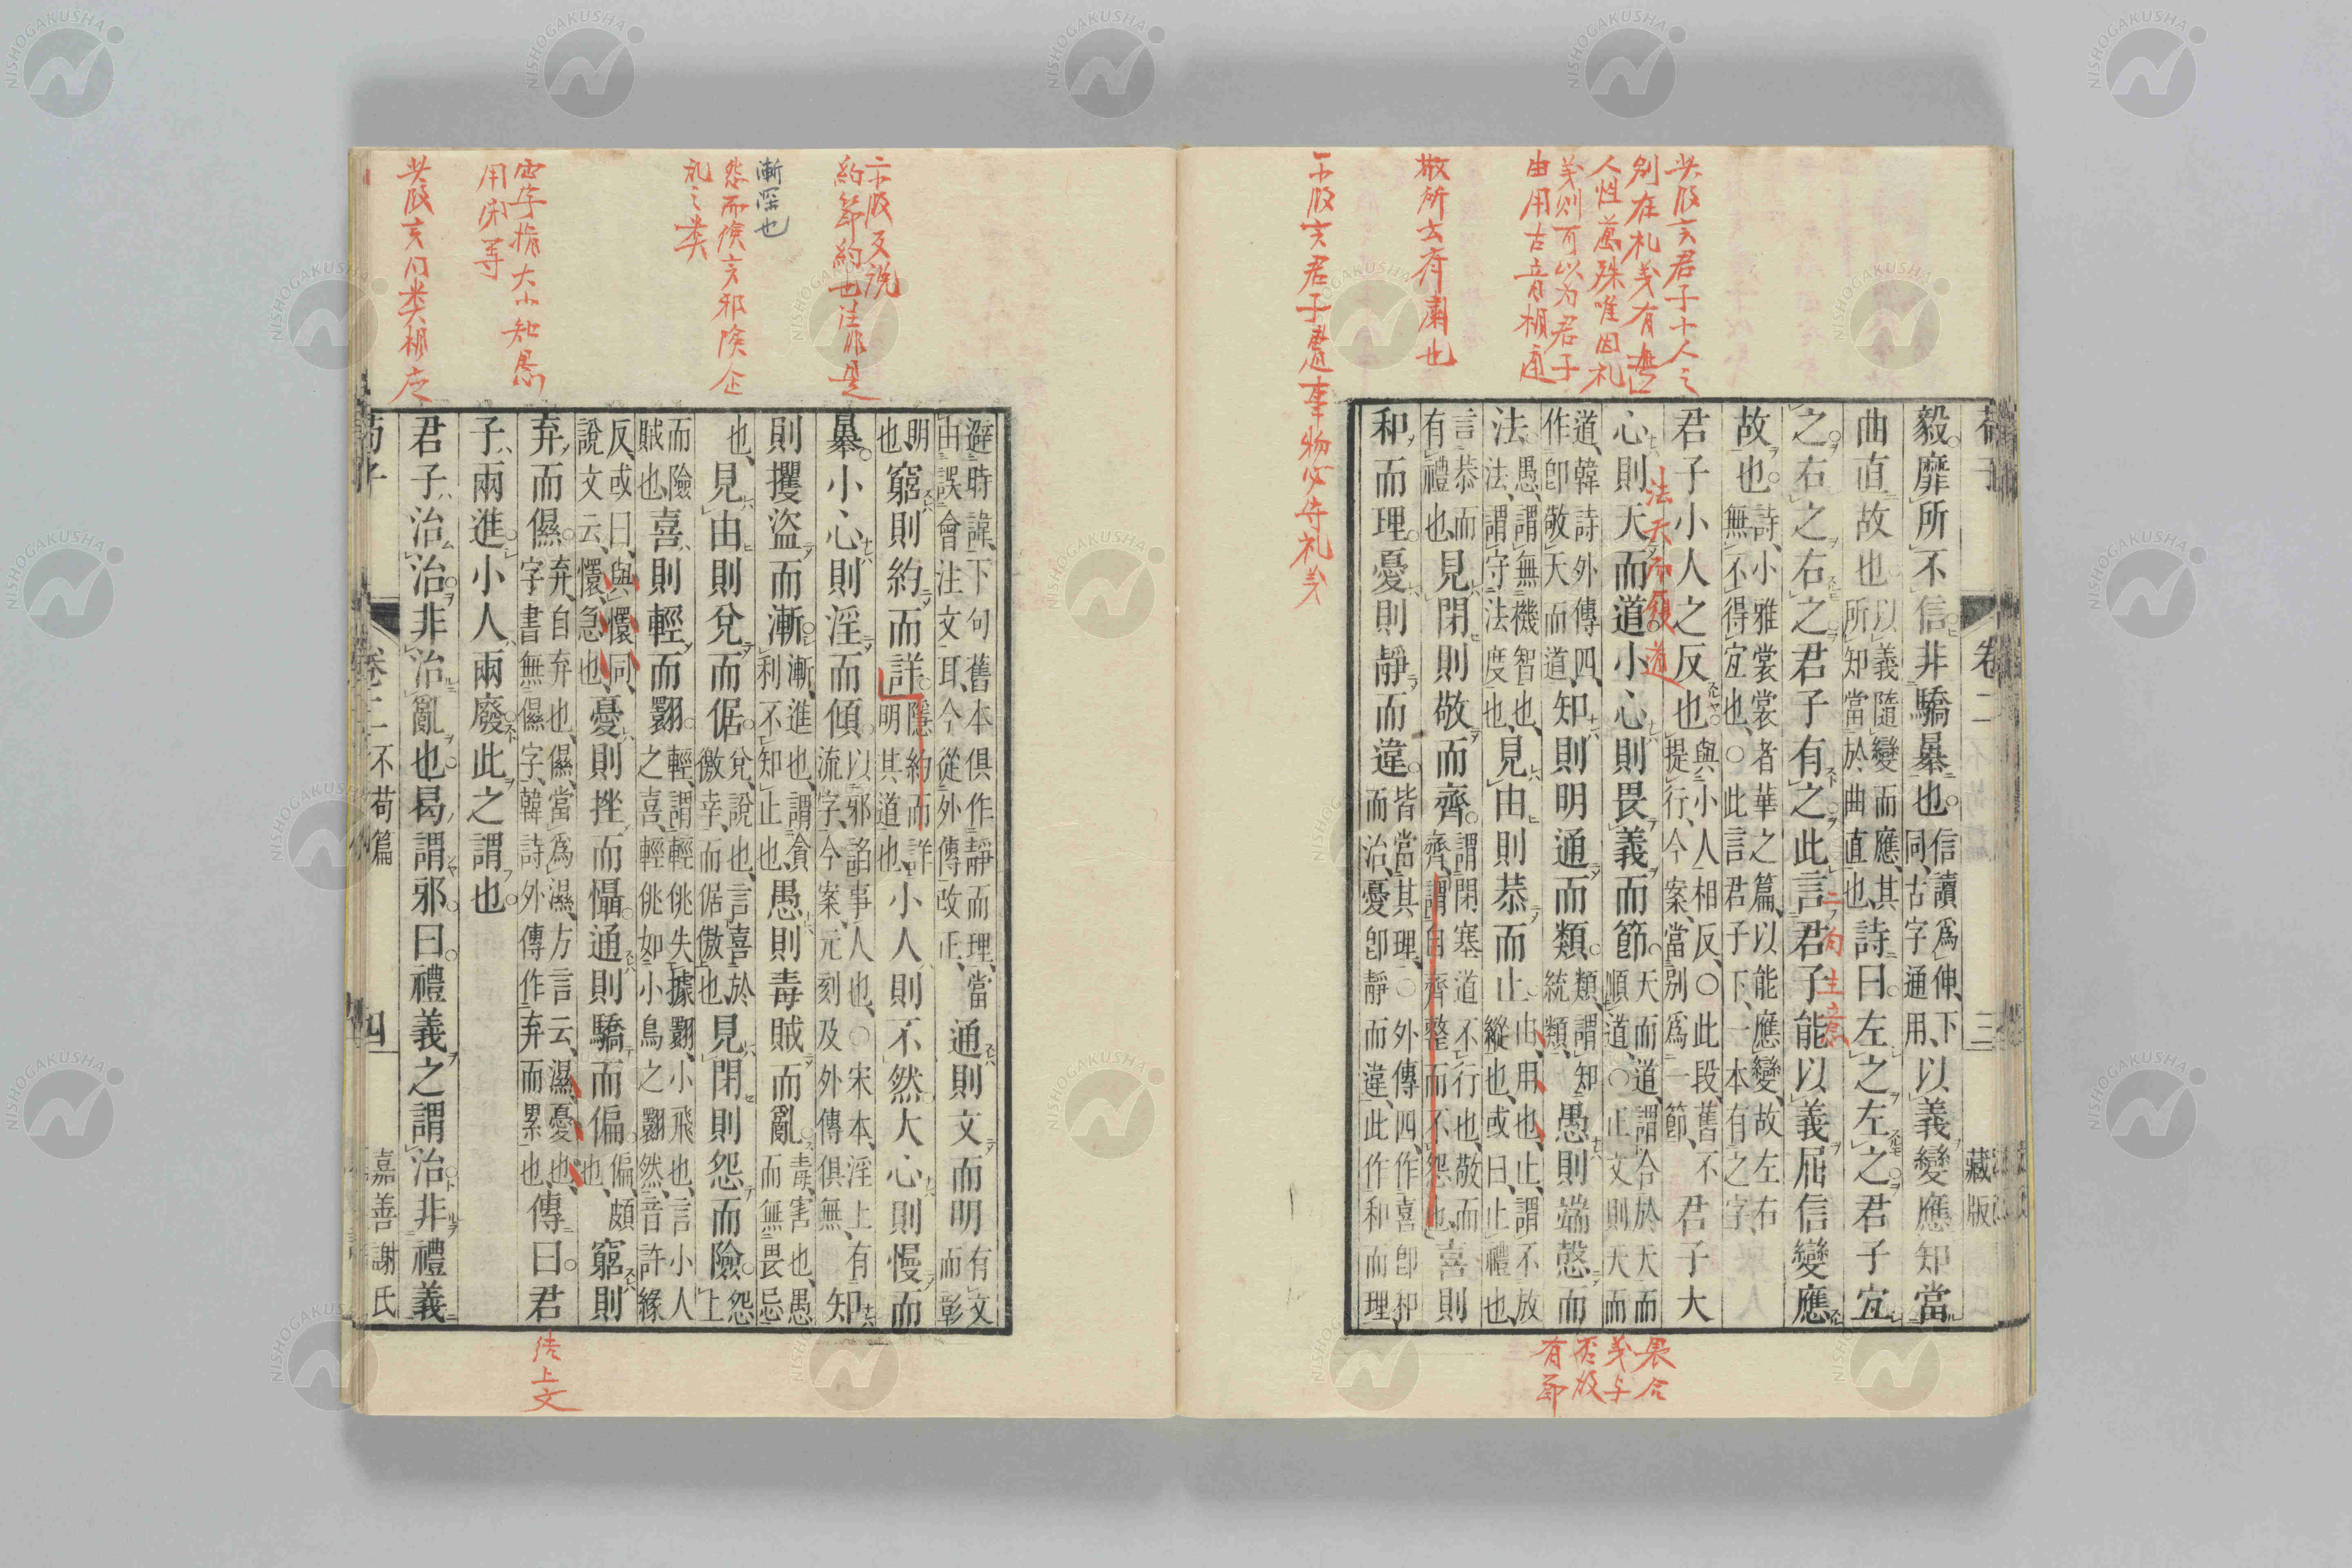 荀子 卷二 三 藏版
毅靡所不信非驕暴也信讀爲伸下同古字通用以義變應知當
曲直故也以義隨變而應其所知當於曲直也詩曰左之左之君子宜
之右之右之君子有之此言君子能以義屈信變應
故也詩小雅裳裳者華之篇以能應變故左右無不得宜也○此言君子下一本有之字
君子小人之反也與小人相反○此段舊不提行今案當別爲一節君子大
心則天而道小心則畏義而節天而道謂合於天而順道○正文則天而
道韓詩外傳四作卽敬天而道知則明通而類類謂知統類愚則端愨而
法愚謂無機智也法謂守法度也見由則恭而止由用也止謂不放縱也或曰止禮也
言恭而有禮也見閉則敬而齊謂閉塞道不行也敬而齊謂自齊整而不怨也喜則
和而理憂則靜而違皆當其理○外傳四作喜卽和而理治憂卽靜而違此作和而理
此段言君子小人之
別在礼義有無
人性萬殊唯因礼
義則可以为君子
由用古音相通
敬所云斉肅也
下段言君子處事物必守礼义
法天而順道
二句主意
畏合
義与
有節
避時諱下句舊本俱作靜而理當由誤會注文耳今從外傳改正通則文而明有文而彰
明也窮則約而詳隱約而詳明其道也小人則不然大心則慢而
暴小心則淫而傾以邪諂事人也○宋本淫上有流字今案元刻及外傳俱無知
則攫盜而漸漸進也謂貪利不知止也愚則毒賊而亂毒害也愚而無畏忌
也見由則兌而倨兌說也言喜於徼幸而倨傲也見閉則怨而險怨上
而險賊也喜則輕而翾輕謂輕佻失據翾小飛也言小人之喜輕佻如小鳥之翾然音許緣
反或曰與懁同說文云懁急也憂則挫而懾通則驕而偏偏頗也窮則
弃而儑弃自弃也儑當爲濕方言云濕憂也字書無儑字韓詩外傳作弃而累也傳曰君
子兩進小人兩廢此之謂也
君子治治非治亂也曷謂邪曰禮義之謂治非禮義
荀子 卷二 不苟篇 四 嘉善謝氏
下段反説
約節約也注非是
漸深也
怨而険言邪険
礼之类
四字指大小知愚
用閉等
此段言同类相应
結上文
NISHOGAKUSHA